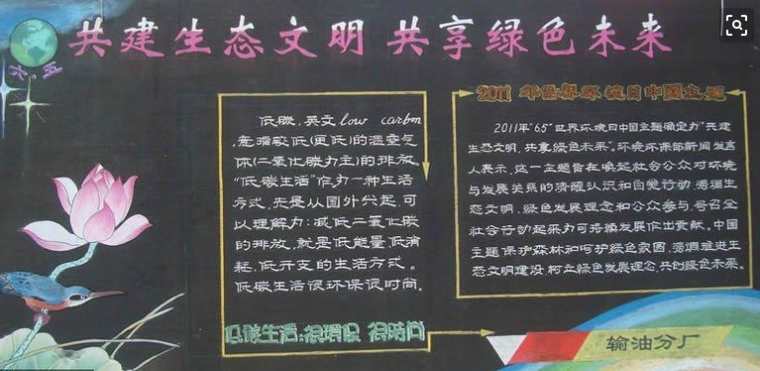 共建生态文明 共享绿色未来
六·五
低碳,英文low carbon,
意指较低(更低)的温室气
体(二氧化碳为主)的排放。
“低碳生活”作为一种生活
方式,先是从国外兴起,可
以理解为:减低二氧化碳
的排放,就是低能量、低消
耗、低开支的生活方式。
低碳生活很环保很时尚。
低碳生活:很环保 很时尚
2011年世界环境日中国主题
2011年“65”世界环境日中国主题确定为“共建
生态文明,共享绿色未来”。环境保部新闻发言
人表示,这一主题旨在唤起社会公众对环境
与发展关系的清醒认识和自觉行动,
生态文明、绿色发展理念和公众参与,号召全
社会行动起来为可持续发展作出贡献。中国
主题保护森林和呵护绿色家园,推进生
态文明建设,树立绿色发展理念,共创绿色未来。
输油分厂